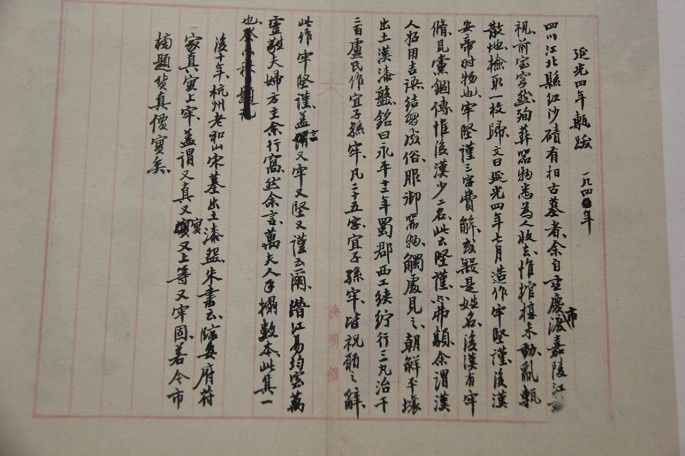 延光四年甎跋 一九四〇年
四川江北縣紅沙磧有掘古墓者余自重慶市渡嘉陵江
視前室空然殉葬器物悉為人收去惟棺槨未動亂甎
散地撿取一枚歸文曰延光四年七月造作牢堅謹後漢
安帝時物也牢堅謹三字費解或疑是姓名後漢有牢
脩見黨錮傳惟後漢少二名此云堅謹亦弗類余謂漢
人好用吉語結習成俗服御器物觸處見之朝鮮平壤
出土漢漆盤銘曰永平十二年蜀郡西工綊紵行三丸治千
二百盧氏作宜子孫牢凡二十五字宜子孫牢皆祝頌之辭
此作牢堅謹蓋言又牢又堅又謹云爾潛江易均室萬
靈蕤夫婦方主余行寓然余言萬夫人手搨數本此其一
也
後十年杭州老和山宋墓出土漆盌朱書云
家真實上牢蓋謂又真又實又上等又牢固若今市
招題貨真價實矣
朱明鎧